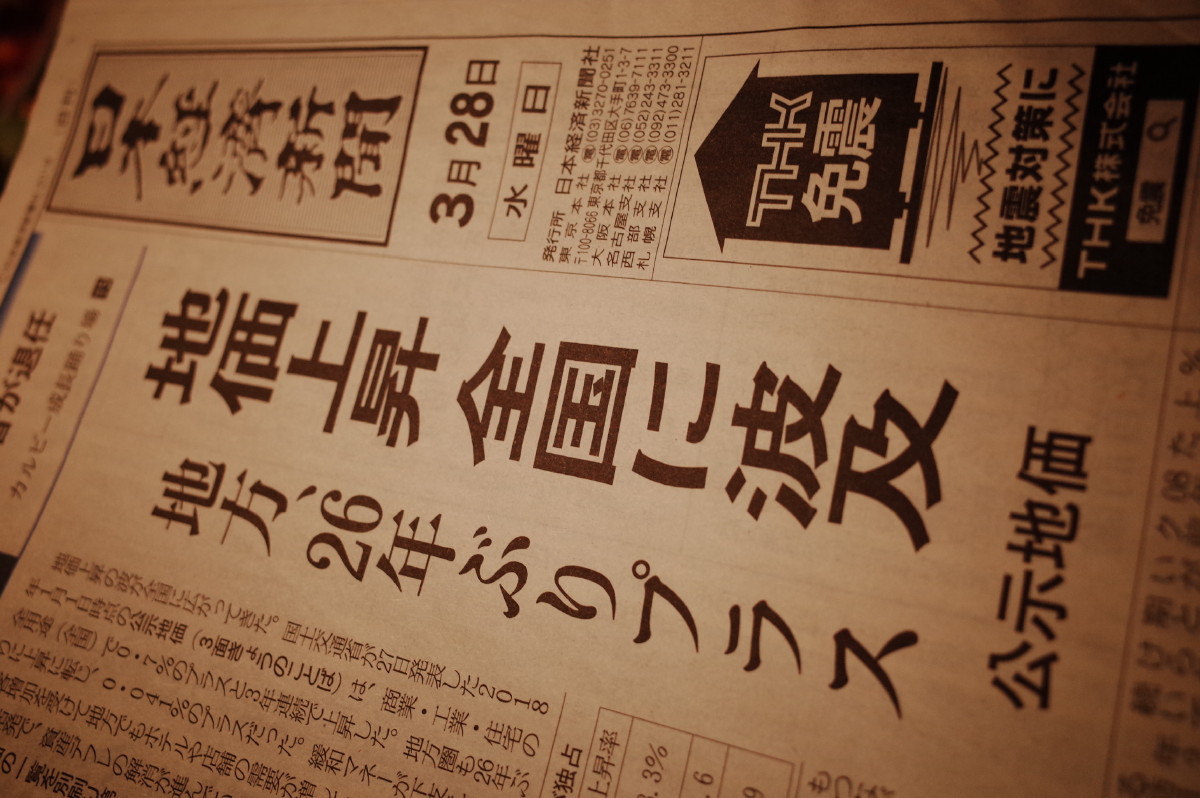 日本経済新聞
3月28日
水曜日
発行所 日本経済新聞社
東京本社 電(03)3270-0251
〒100-8066 東京都千代田区大手町1-3-7
大阪本社 電(06)7639-7111
名古屋支社 電(052)243-3311
西部支社 電(092)473-3300
札幌支社 電(011)281-3211
THK
免震
地震対策に
THK株式会社
免震
地価上昇全国に波及
地方、26年ぶりプラス
公示地価
が退任
カルビー成長踊り場
地価上昇の波が全国に広がってきた。国土交通省が27日発表した2018
年1月1日時点の公示地価(3面きょうのことば)は、商業・工業・住宅の
全用途(全国)で0・7%のプラスと3年連続で上昇した。地方圏も26年ぶ
りに上昇に転じ、0・041%のプラスだった。緩和マネーが下支
増加を受けて地方でもホテルや店舗の需要が増
発で、資産デフレの解消が進んで
の一覧を別刷り
独占
上昇率